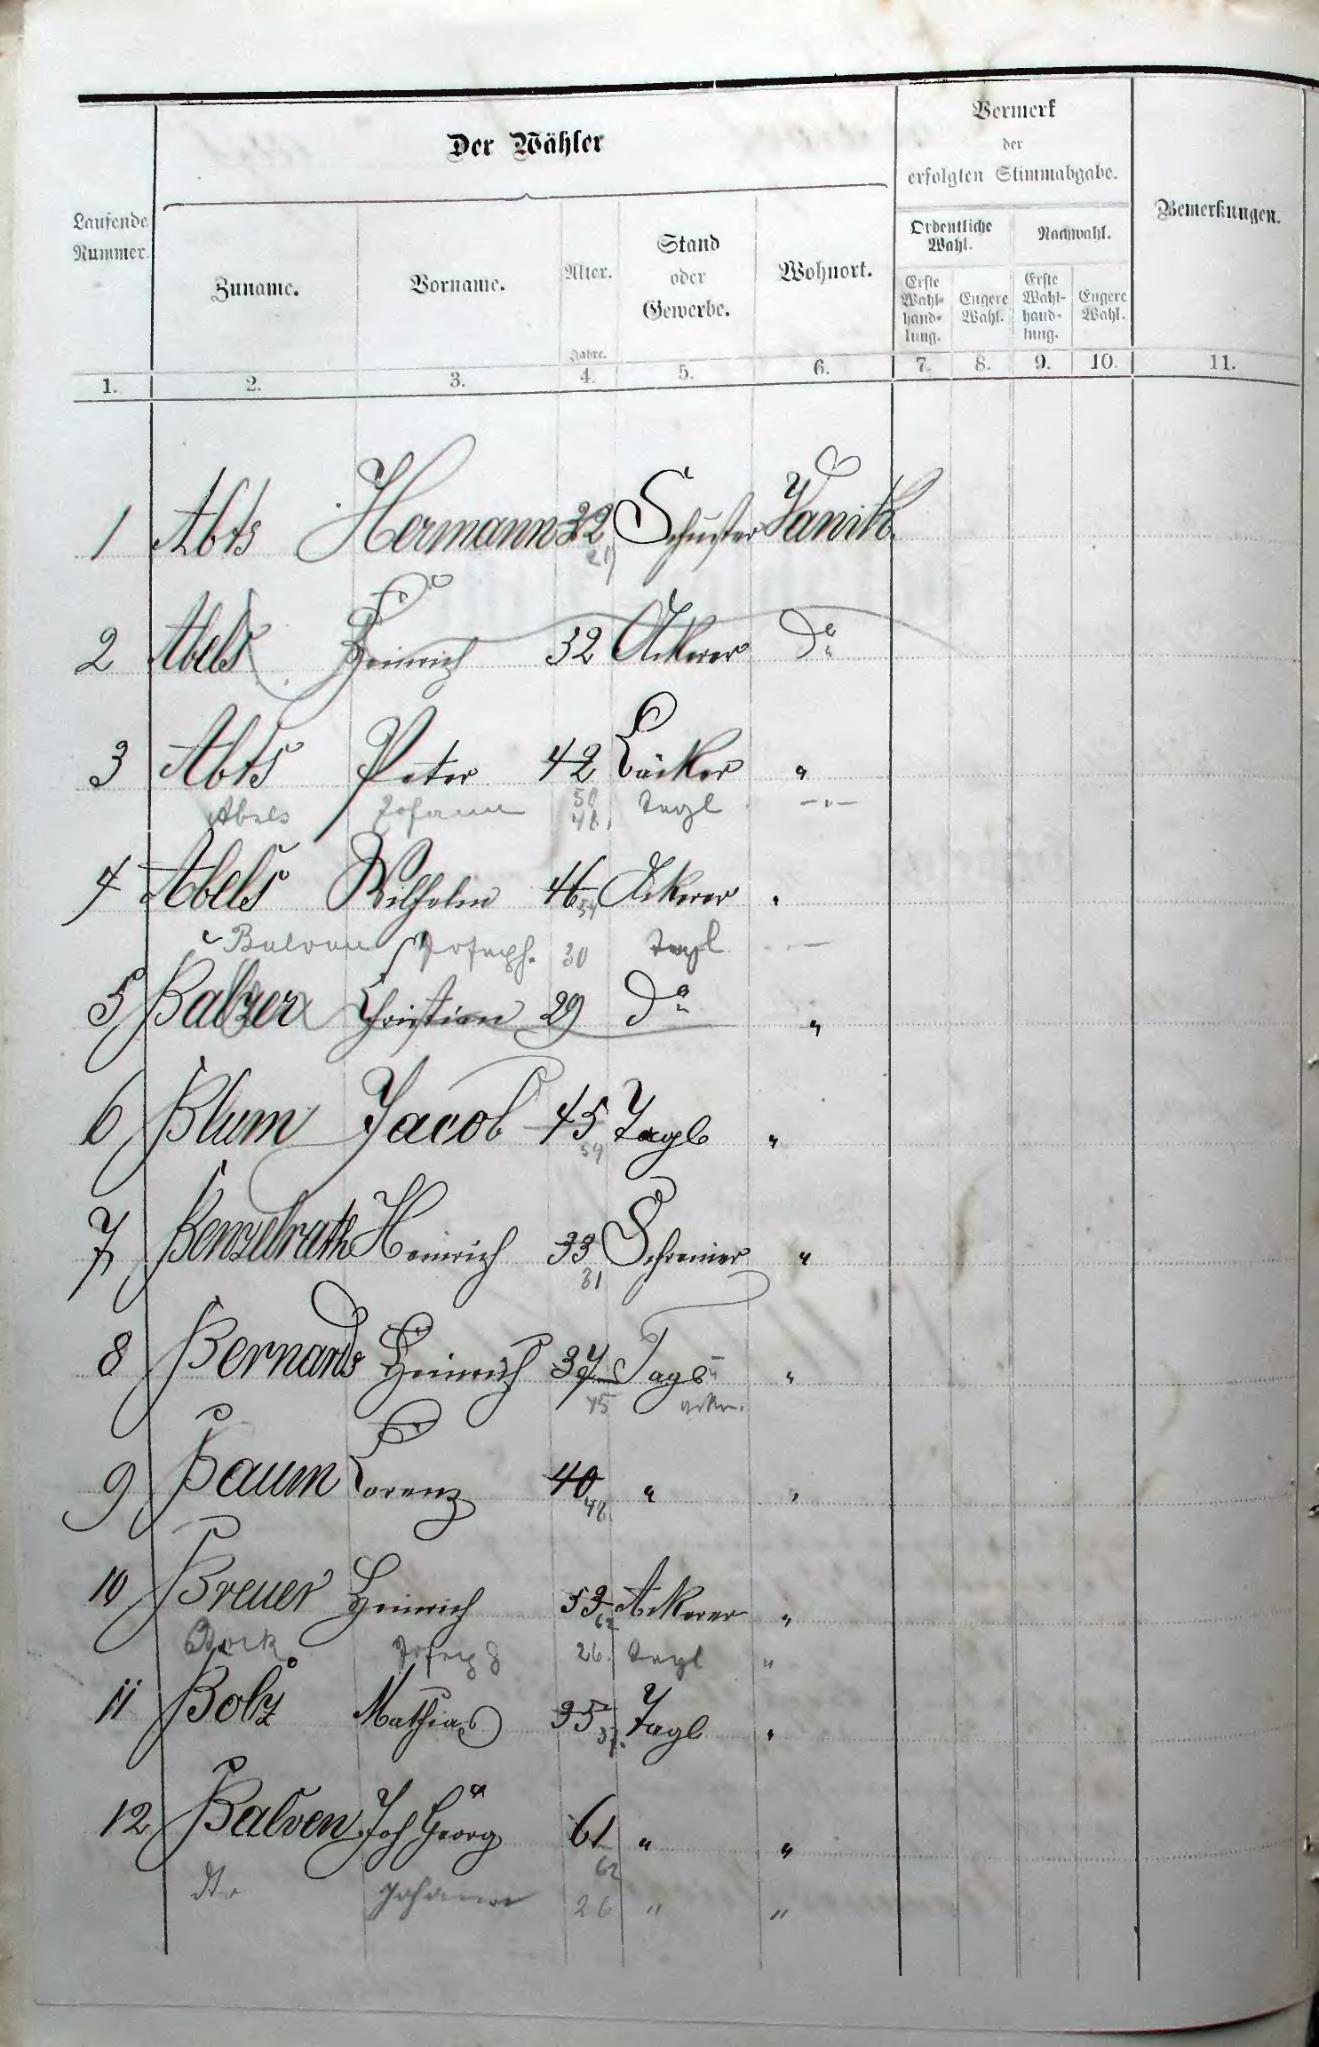 Der Wähler
Vermerk
der
erfolgten Stimmabgabe.
Bemerkungen.
Laufende
Nummer.
Zuname.
Vorname.
Alter.
Jahre.
Stand
oder
Gewerbe.
Wohnort.
Ordentliche
Wahl.
Nachwahl.
Erste
Wahl-
hand-
lung.
Engere
Wahl.
Erste
Wahl-
hand-
lung.
Engere
Wahl.
1. 2. 3. 4. 5. 6. 7. 8. 9. 10. 11.
1 Abts Hermann 32 Schuster Vanik
2 Abels Heinrich 32 Ackerer Do
3 Abts Peter 42 Bäcker "
Abels Johann 50 Tagl -"-
48
4 Abels Wilhelm 46 Ackerer "
54
Balven Joseph. 30 Tagl -"-
5 Balzer Christian 29 Do "
6 Blum Jacob 45 Tagl "
54
7 Benzelrath Heinrich 33 Schreiner "
8 Bernards Heinrich 37 Tagl "
45
9 Baum Lorenz 40 " "
48
10 Breuer Heinrich 53 Ackerer "
62
Joseph 26. Tagl "
11 Bolz Mathias 35 Tagl "
12 Balven Joh Georg 61 " "
62
Johann 26 " "